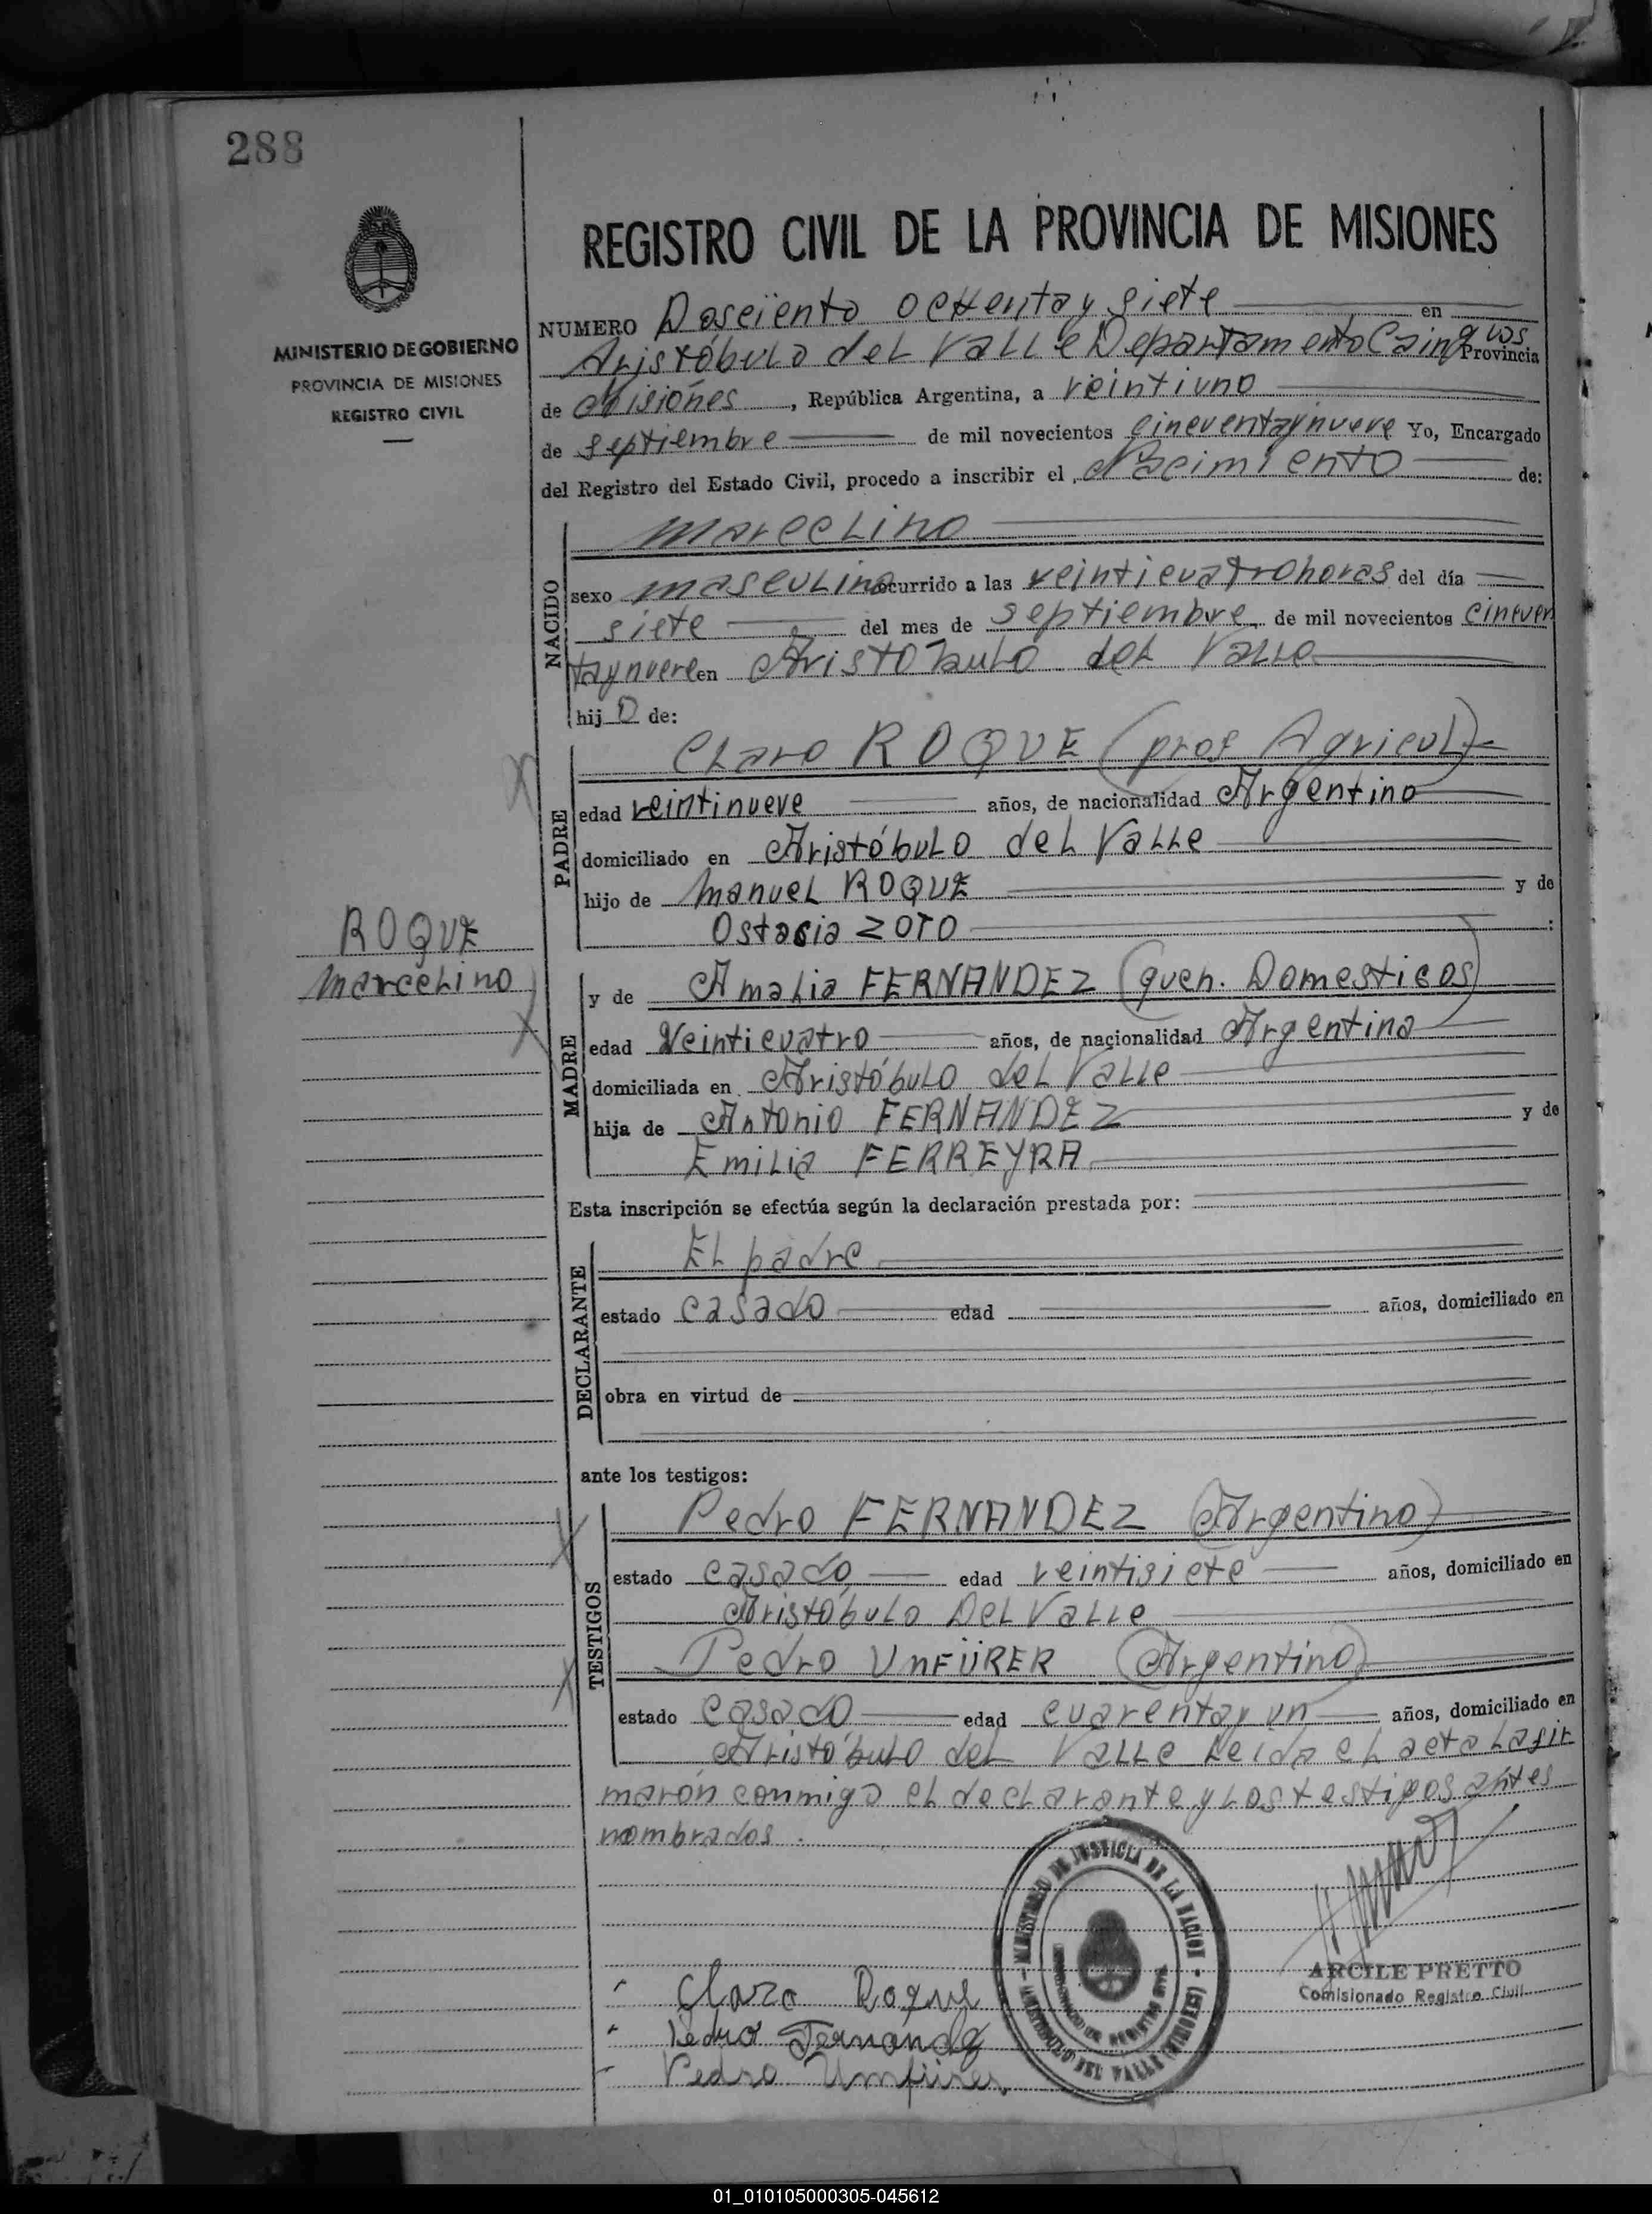 288
REGISTRO CIVIL DE LA PROVINCIA DE MISIONES
MINISTERIO DE GOBIERNO
PROVINCIA DE MISIONES
REGISTRO CIVIL
NUMERO Doseiento ochenta y siete en
Aristóbulo del Valle Departamento Cainguas Provincia
de Misiónes, República Argentina, a veintiuno
de septiembre de mil novecientos cincuentaynueve Yo, Encargado
del Registro del Estado Civil, procedo a inscribir el Nacimiento de:
NACIDO
Marcelino
sexo masculino ocurrido a las veinticuatro horas del día
siete del mes de septiembre de mil novecientos cincuen
taynueve en Aristobulo del Valle
hijo de:
PADRE
Claro ROQUE (prof Agricol)
edad veintinueve años, de nacionalidad Argentino
domiciliado en Aristóbulo del Valle
hijo de Manuel ROQUE y de
Ostasia ZOTO :
ROQUE
Marcelino
MADRE
y de Amalia FERNANDEZ (queh. Domesticos)
edad Veinticuatro años, de nacionalidad Argentina
domiciliada en Aristóbulo del Valle
hija de Antonio FERNANDEZ y de
Emilia FERREYRA
Esta inscripción se efectúa según la declaración prestada por:
DECLARANTE
El padre
estado casado edad años, domiciliado en
obra en virtud de
ante los testigos:
TESTIGOS
Pedro FERNANDEZ (Argentino)
estado casado edad veintisiete años, domiciliado en
Aristóbulo Del Valle
Pedro UNFÜRER (Argentino)
estado casado edad cuarentayun años, domiciliado en
Aristóbulo del Valle Leida el acta la fir
marón conmigo el declarante y los testigos antes
nombrados.
MINISTERIO DE JUSTICIA DE LA NACION
ARISTOBULO DEL VALLE (MISIONES)
ARCILE PRETTO
Comisionado Registro Civil
Claro Roque
Pedro Fernandez
Pedro Umfürer
01_010105000305-045612